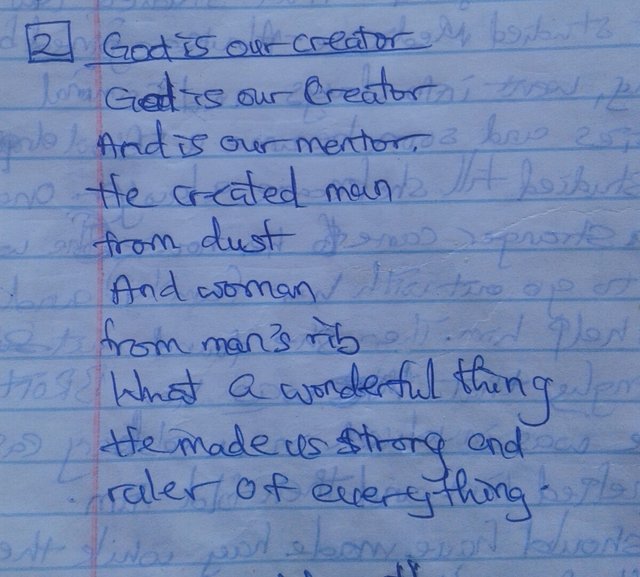 2 God is our creator
God is our Creator
And is our mentor.
He created man
from dust
And woman
from man's rib
What a wonderful thing
He made us strong and
ruler of everything.